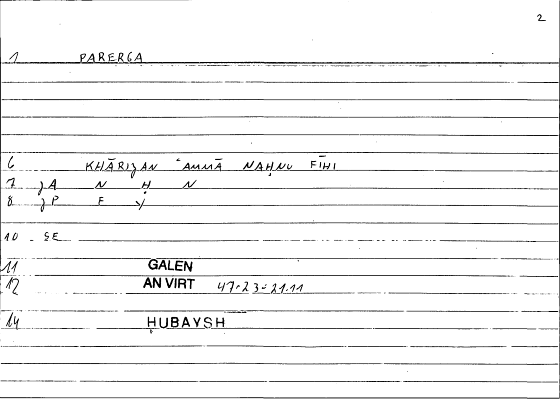 2
1 PARERGA
6 KHĀRIJAN ʿAMMĀ NAḤNU FĪHI
7 JA N Ḥ N
8 JP F Y
10 SE
11 GALEN
12 AN VIRT 47-23-21.11
14 ḤUBAYSH